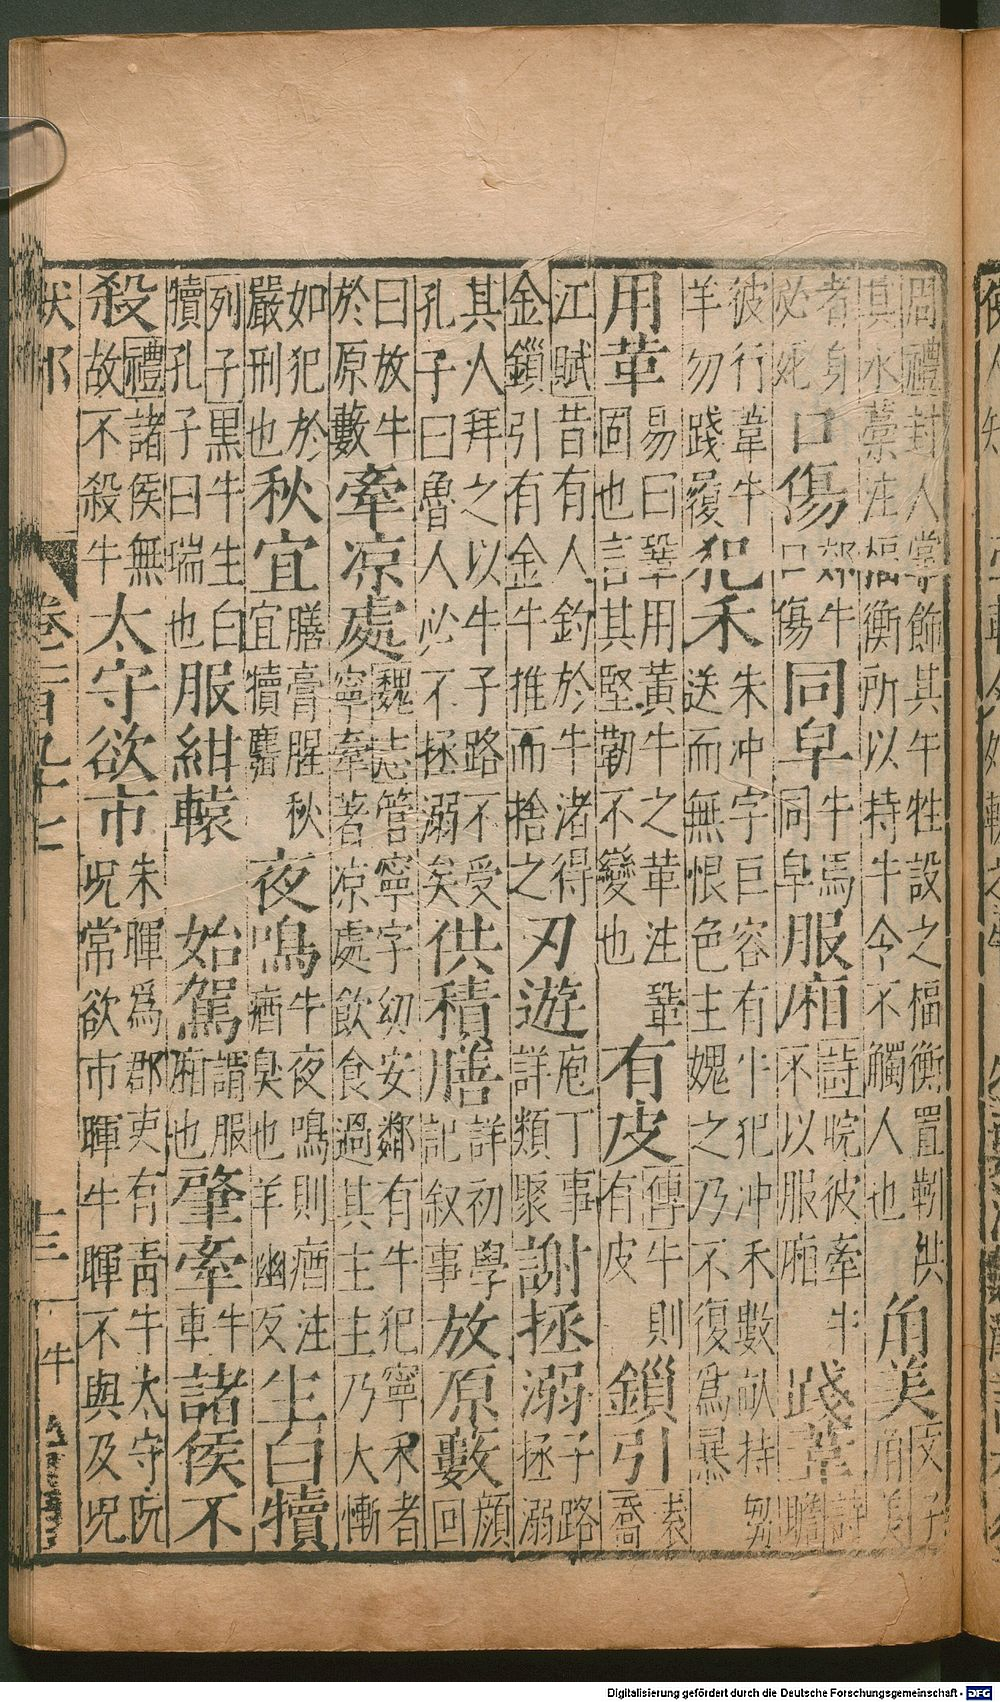 周禮封人掌飾其牛牲設之楅衡置靷供
其水藁注楅衡所以持牛令不觸人也
角美
文子
角美
者身
必死
口傷
郊牛
口傷
同皁
牛馬
同皁
服廂
詩睆彼牽牛
不以服廂
踐葦
詩
彼行葦牛
羊勿踐履
犯禾
朱冲字巨容有牛犯冲禾數畝持芻
送而無恨色主媿之乃不復爲暴
用革
易曰鞏用黃牛之革注鞏
固也言其堅靭不變也
有皮
傳牛則
有皮
鎖引
袁
喬
江賦昔有人釣於牛渚得
金鎖引有金牛推而捨之
刃遊
庖丁事
詳類聚
謝拯溺
子路
拯溺
其人拜之以牛子路不受
孔子曰魯人必不拯溺矣
供積膳
詳初學
記叙事
放原藪
顔
回
曰放牛
於原藪
牽凉處
魏志管寧字幼安鄰有牛犯寧禾者
寧牽著凉處飲食過其主主乃大慚
如犯於
嚴刑也
秋宜
膳膏腥秋
宜犢麛
夜鳴
牛夜鳴則庮注
庮臭也羊幽反
生白犢
列子黑牛生白
犢孔子曰瑞也
服紺轅
始駕
謂服
廂也
肇牽
牛
車
諸侯不
殺
禮諸侯無
故不殺牛
太守欲市
朱暉爲郡吏有靑牛太守阮
呪常欲市暉牛暉不與及呪
卷一百九十七
十三
牛
Digitalisierung gefördert durch die Deutsche Forschungsgemeinschaft - DFG